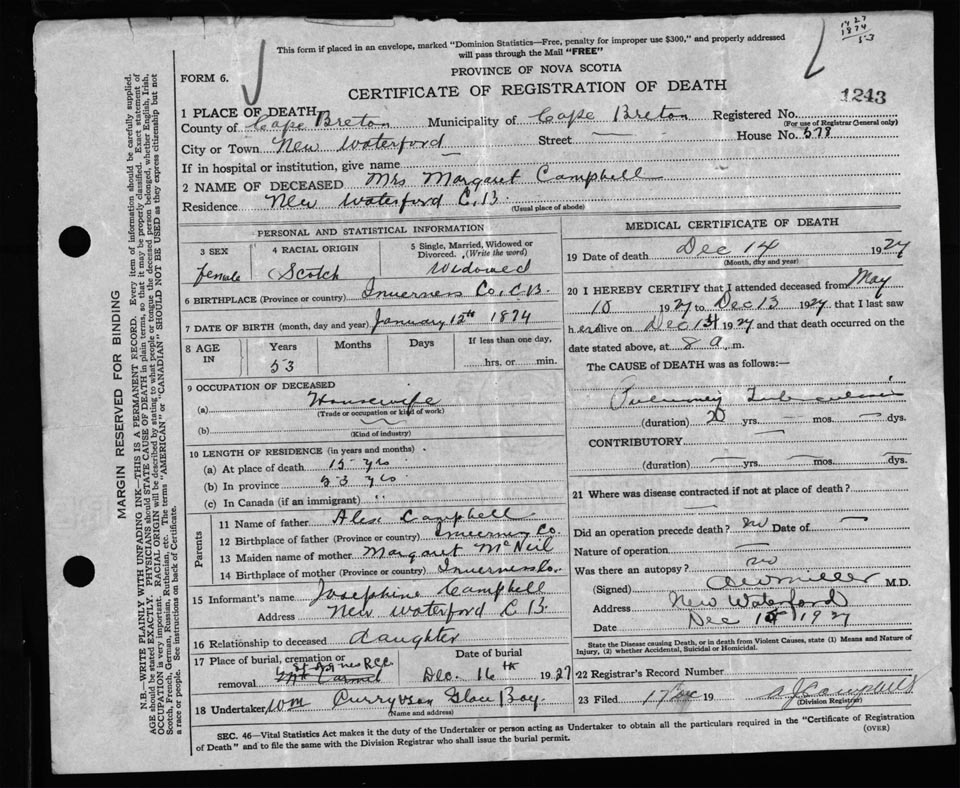 1927
1874
53
This form if placed in an envelope, marked "Dominion Statistics—Free, penalty for improper use $300," and properly addressed
will pass through the Mail "FREE"
FORM 6.
PROVINCE OF NOVA SCOTIA
CERTIFICATE OF REGISTRATION OF DEATH
1243
1 PLACE OF DEATH
County of Cape Breton Municipality of Cape Breton Registered No.
(For use of Registrar General only)
City or Town New Waterford Street House No. 578
If in hospital or institution, give name
2 NAME OF DECEASED Mrs Margaret Campbell
Residence New Waterford C.B.
(Usual place of abode)
PERSONAL AND STATISTICAL INFORMATION
3 SEX 4 RACIAL ORIGIN 5 Single, Married, Widowed or Divorced. (Write the word)
female Scotch Widowed
6 BIRTHPLACE (Province or country) Inverness Co, C.B.
7 DATE OF BIRTH (month, day and year) January 12th 1874
8 AGE IN Years Months Days If less than one day,
53 hrs. or min.
9 OCCUPATION OF DECEASED
(a) Housewife
(Trade or occupation or kind of work)
(b)
(Kind of industry)
10 LENGTH OF RESIDENCE (in years and months)
(a) At place of death 15 yrs
(b) In province 53 yrs
(c) In Canada (if an immigrant) "
Parents
11 Name of father Alex Campbell
12 Birthplace of father (Province or country) Inverness Co.
13 Maiden name of mother Margaret McNeil
14 Birthplace of mother (Province or country) Inverness Co.
15 Informant's name Josephine Campbell
Address New Waterford C.B.
16 Relationship to deceased daughter
17 Place of burial, cremation or removal St Agnes R.C.C. Mt Carmel
Date of burial
Dec. 16th 1927
18 Undertaker Wm Curry Glace Bay
(Name and address)
MEDICAL CERTIFICATE OF DEATH
19 Date of death Dec 14 1927
(Month, day and year)
20 I HEREBY CERTIFY that I attended deceased from May
10 1927 to Dec 13 1927, that I last saw
her alive on Dec 13 1927 and that death occurred on the
date stated above, at 8 a. m.
The CAUSE of DEATH was as follows:—
Pulmonary Tuberculosis
(duration) 20 yrs. mos. dys.
CONTRIBUTORY
(duration) yrs. mos. dys.
21 Where was disease contracted if not at place of death?
Did an operation precede death? no Date of
Nature of operation
Was there an autopsy? no
(Signed) Miller M.D.
Address New Waterford
Date Dec 1927
State the Disease causing Death, or in death from Violent Causes, state (1) Means and Nature of
Injury, (2) whether Accidental, Suicidal or Homicidal.
22 Registrar's Record Number
23 Filed 19 A J Campbell
(Division Registrar)
SEC. 46—Vital Statistics Act makes it the duty of the Undertaker or person acting as Undertaker to obtain all the particulars required in the "Certificate of Registration
of Death" and to file the same with the Division Registrar who shall issue the burial permit.
(OVER)
MARGIN RESERVED FOR BINDING
N.B.—WRITE PLAINLY WITH UNFADING INK—THIS IS A PERMANENT RECORD. Every item of information should be carefully supplied.
AGE should be stated EXACTLY. PHYSICIANS should STATE CAUSE OF DEATH in plain terms, so that it may be properly classified. Exact statement of
OCCUPATION is very important. RACIAL ORIGIN will be described by stating to what people or tongue the deceased person belonged, whether English, Irish,
Scotch, French, German, Russian, Ruthenian, etc. The terms "AMERICAN" or "CANADIAN" SHOULD NOT BE USED as they express citizenship but not
a race or people. See instructions on back of Certificate.